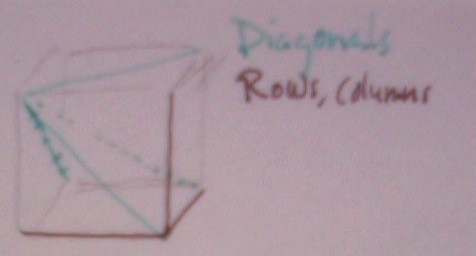 Diagonals
Rows, columns